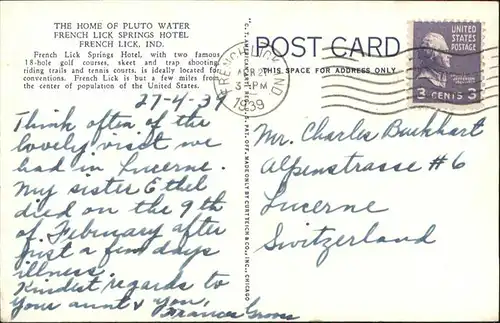 THE HOME OF PLUTO WATER
FRENCH LICK SPRINGS HOTEL
FRENCH LICK, IND.
French Lick Springs Hotel, with two famous
18-hole golf courses, skeet and trap shooting,
riding trails and tennis courts, is ideally located for
conventions. French Lick is but a few miles from
the center of population of the United States.
27-4-39
Think often of the
lovely visit we
had in Lucerne.
My sister Ethel
died on the 9th
of February after
just a few days
illness.
Kindest regards to
your aunt & you,
Frances Groos
POST CARD
THIS SPACE FOR ADDRESS ONLY
FRENCH LICK IND
APR 27
3 PM
1939
UNITED
STATES
POSTAGE
3 CENTS 3
Mr. Charles Burkhart
Alpenstrasse #6
Lucerne
Switzerland
MADE ONLY BY CURT TEICH & CO., INC., CHICAGO